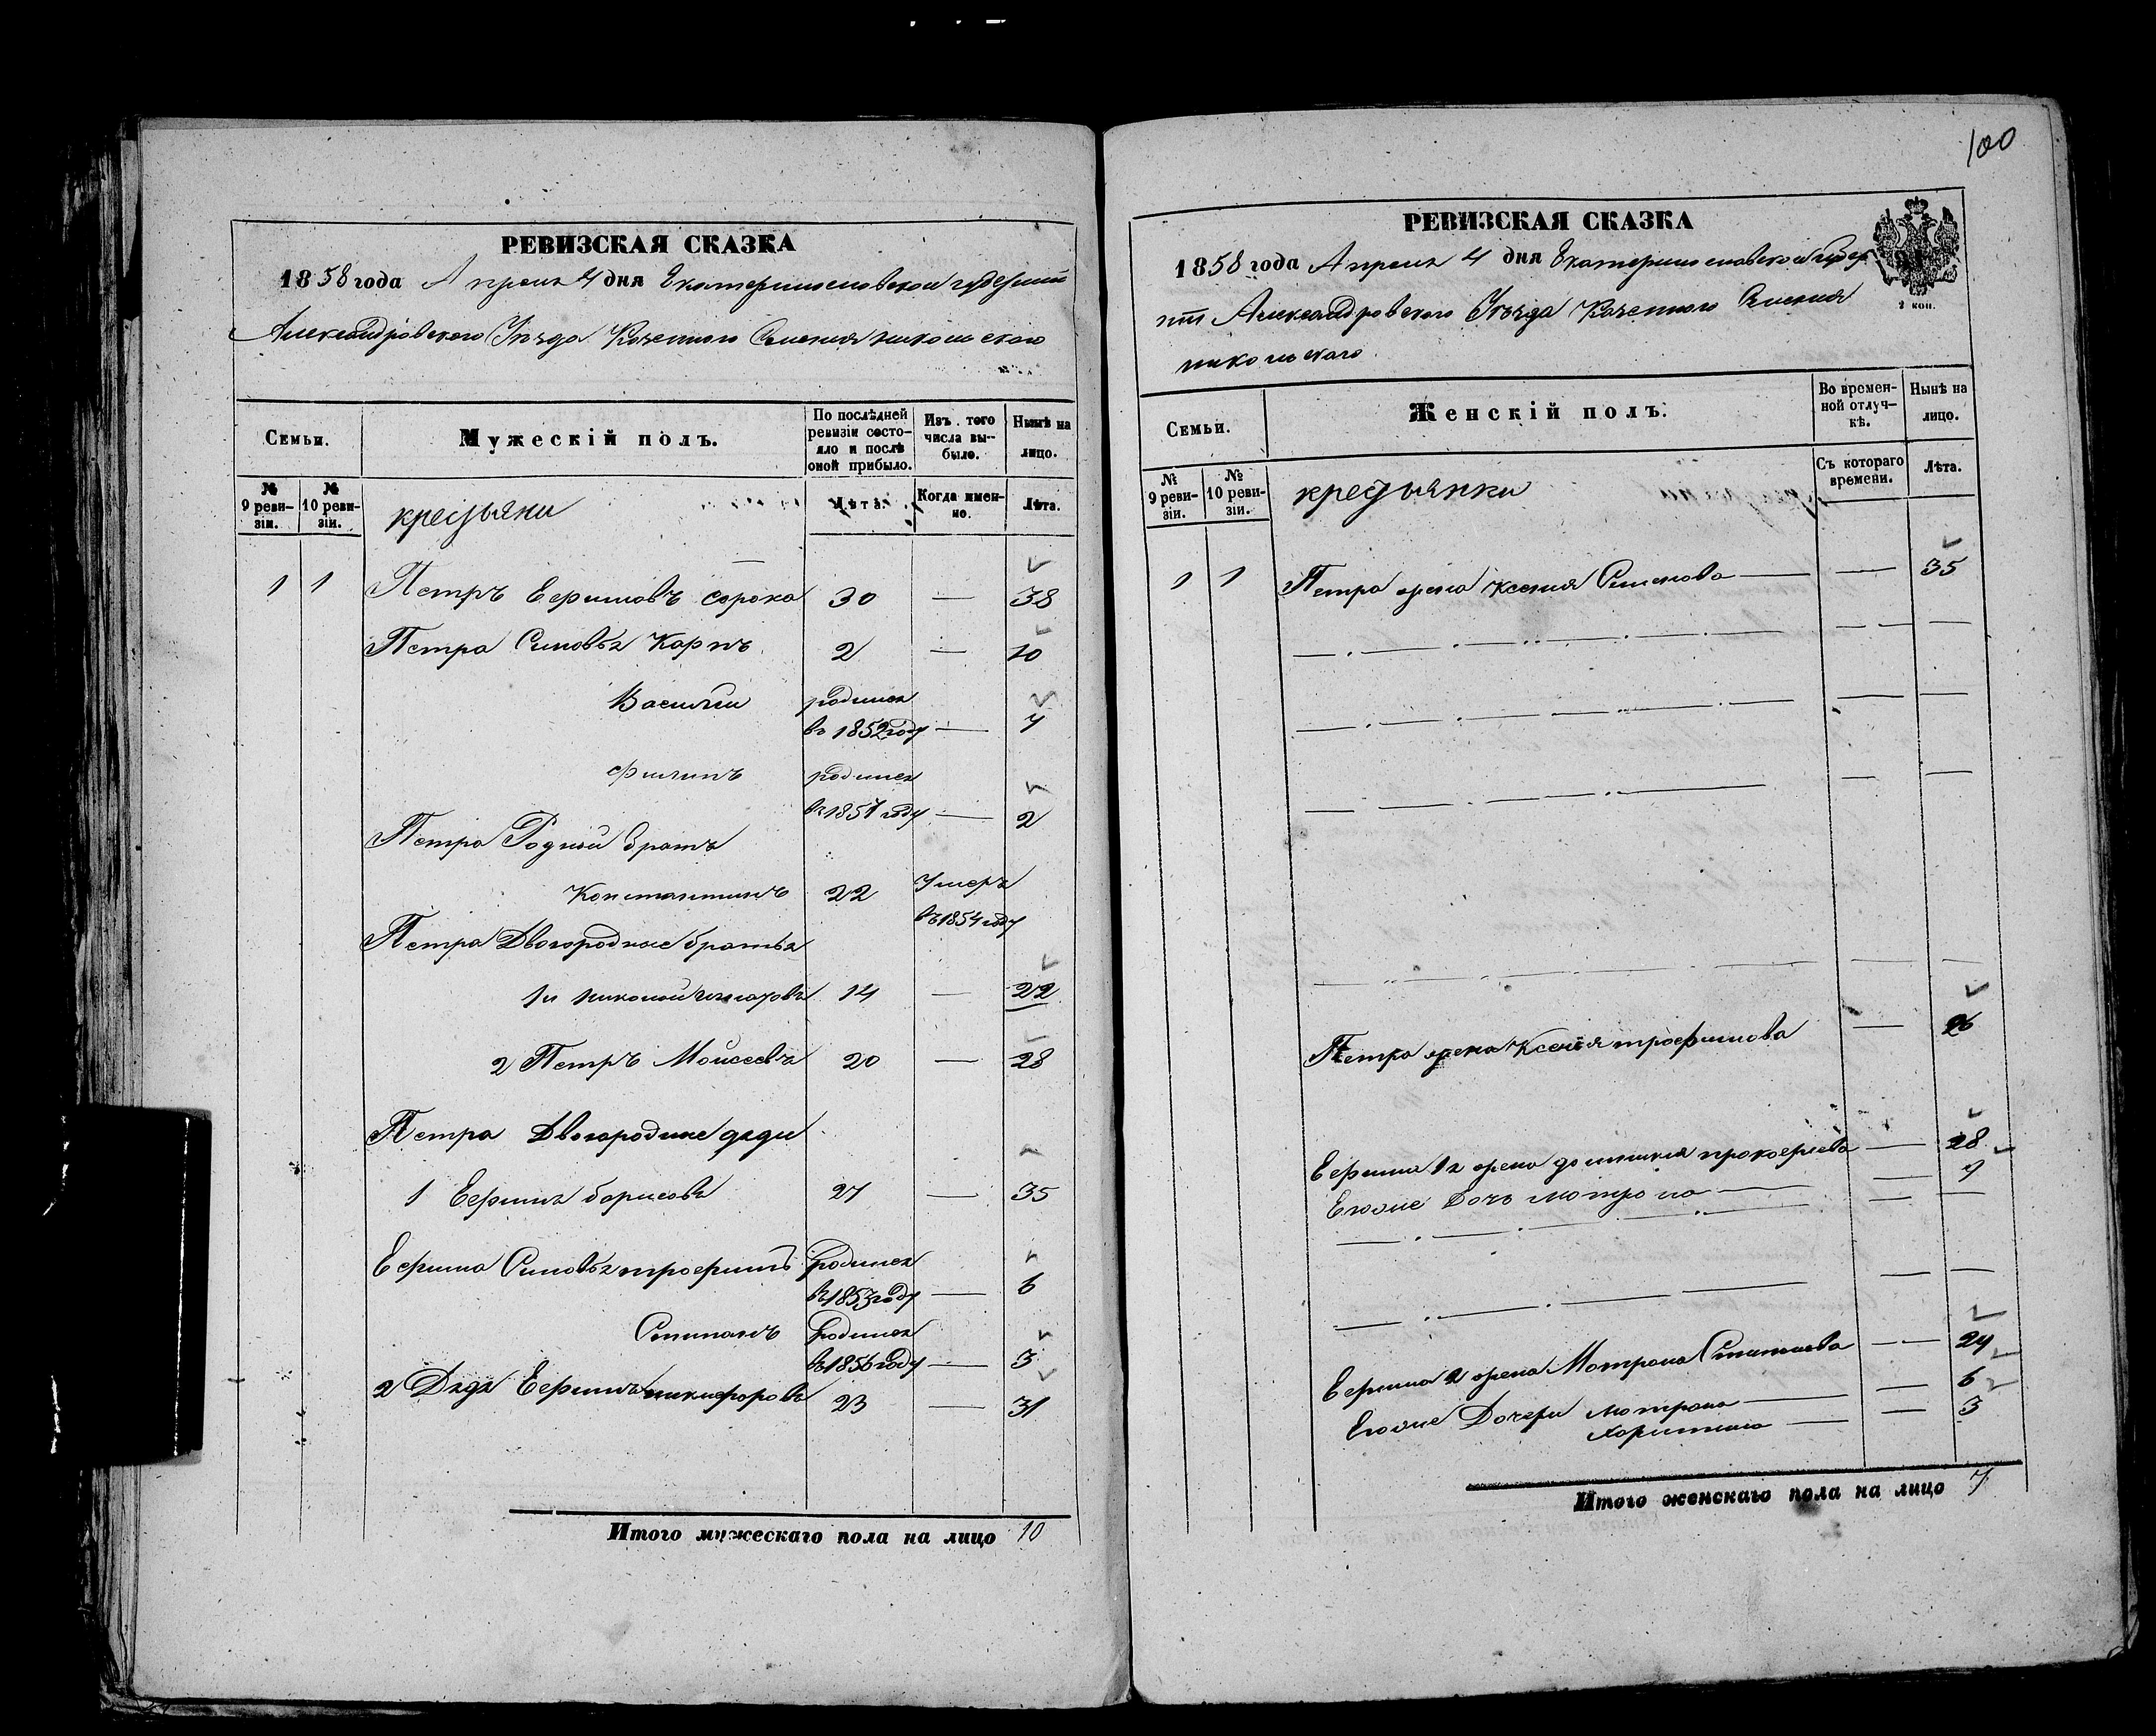 100
РЕВИЗСКАЯ СКАЗКА
1858 года Апреля 4 дня Екатеринославской губернии
Александровского Уезда Казенного Селения никольского
Семьи.
Мужескій полъ.
По послѣдней ревизіи состояло и послѣ оной прибыло.
Изъ того числа выбыло.
Нынѣ на лицо.
№ 9 ревизіи.
№ 10 ревизіи.
крестьяни
Лѣта.
Когда именно.
Лѣта.
1 1 Петръ Ефимовъ сорока 30 — 38
Петра Синовья Карпъ 2 — 10
Василии родился
въ 1852 году — 7
Филипъ родился
въ 1857 году — 2
Петра Родной братъ
Константинъ 22 Умеръ
въ 1854 году
Петра Двогородные братья
1й николай 14 — 22
2 Петръ Моисеевъ 20 — 28
Петра Двогородние дяди
1 Ефимъ борисовъ 27 — 35
Ефима Синовья трофимъ родился
въ 1853 году — 6
Степанъ родился
въ 1856 году — 3
2 Дядя Ефимъ никифоровъ 23 — 31
Итого мужескаго пола на лицо 10
РЕВИЗСКАЯ СКАЗКА
2 коп.
1858 года Апреля 4 дня Екатеринославской Губер
нии Александровского Уезда Казенного Селения
никольского
Семьи.
Женскій полъ.
Во временной отлучкѣ.
Нынѣ на лицо.
№ 9 ревизіи.
№ 10 ревизіи.
крестьянки
Съ котораго времени.
Лѣта.
1 1 Петра жена Ксения Семенова — — 35
Петра жена Ксения трофимова — 26
Ефима 1я жена домникия прокофиева — 28
Еговие Дочь мотрона — — 9
Ефима 2 жена Мотрона — 24
Еговие Дочери мотрона — — 6
Харитина — — 3
Итого женскаго пола на лицо 7